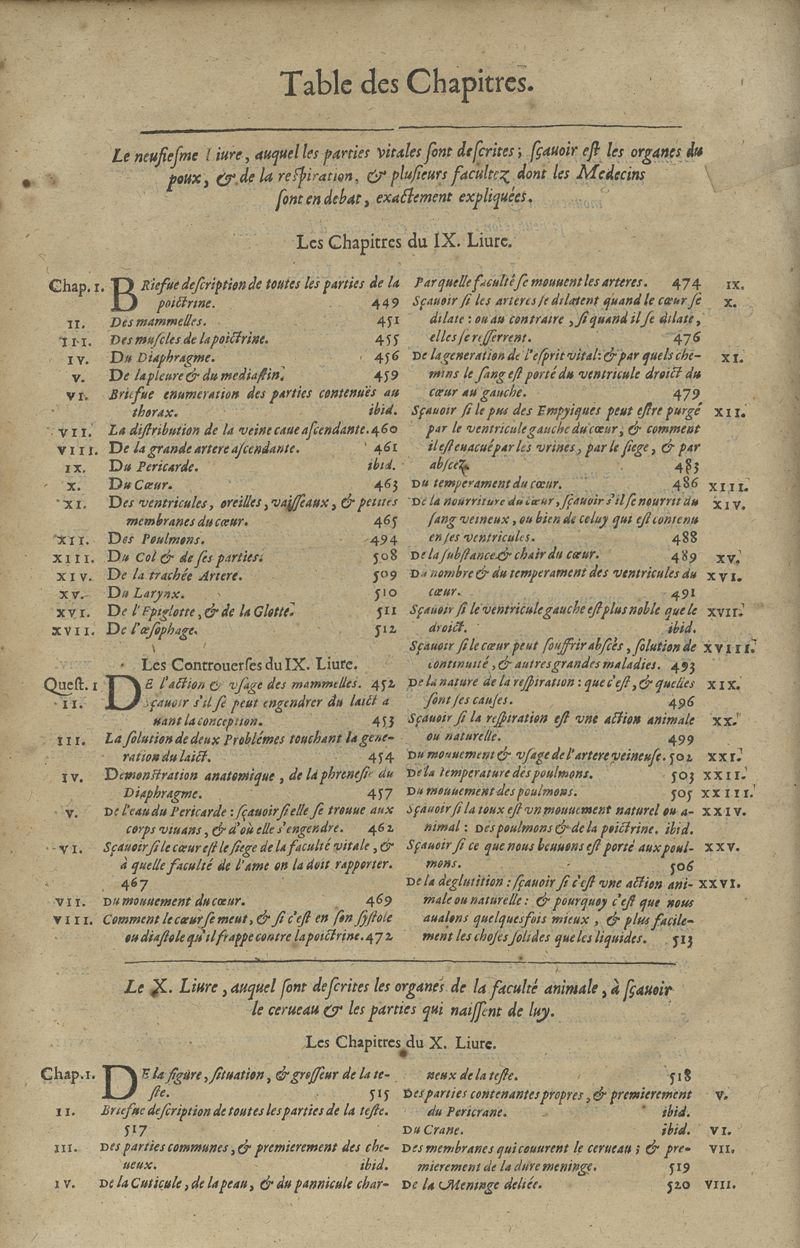 Table des Chapitres.
Le neufiesme Liure, auquel les parties vitales ſont deſcrites; ſçauoir eſt les organes du
poux, & de la reſpiration, & pluſieurs facultez dont les Medecins
ſont en debat, exactement expliquées.
Les Chapitres du IX. Liure.
Chap. I. BRiefue deſcription de toutes les parties de la
poictrine. 449
II. Des mammelles. 451
III. Des muſcles de la poictrine. 455
IV. Du Diaphragme. 456
V. De la pleure & du mediaſtin. 459
VI. Briefue enumeration des parties contenuës au
thorax. ibid.
VII. La diſtribution de la veine caue aſcendante. 460
VIII. De la grande artere aſcendante. 461
IX. Du Pericarde. ibid.
X. Du Cœur. 463
XI. Des ventricules, oreilles, vaiſſeaux, & petites
membranes du cœur. 465
XII. Des Poulmons. 494
XIII. Du Col & de ſes parties. 508
XIV. De la trachée Artere. 509
XV. Du Larynx. 510
XVI. De l'Epiglotte, & de la Glotte. 511
XVII. De l'œſophage. 512
Les Controuerſes du IX. Liure.
Queſt. I DE l'action & vſage des mammelles. 452
II. Sçauoir s'il ſe peut engendrer du laict a
uant la conception. 453
III. La ſolution de deux Problémes touchant la gene-
ration du laict. 454
IV. Demonſtration anatomique, de la phreneſie du
Diaphragme. 457
V. De l'eau du Pericarde: ſçauoir ſi elle ſe trouue aux
corps viuans, & d'où elle s'engendre. 462
VI. Sçauoir ſi le cœur eſt le ſiege de la faculté vitale, &
à quelle faculté de l'ame on la doit rapporter.
467
VII. Du mouuement du cœur. 469
VIII. Comment le cœur ſe meut, & ſi c'eſt en ſon ſyſtole
ou diaſtole qu'il frappe contre la poictrine. 472
Par quelle faculté ſe mouuent les arteres. 474 IX.
Sçauoir ſi les arteres ſe dilatent quand le cœur ſe X.
dilate: ou au contraire, ſi quand il ſe dilate,
elles ſe reſſerrent. 476
De la generation de l'eſprit vital: & par quels che- XI.
mins le ſang eſt porté du ventricule droict du
cœur au gauche. 479
Sçauoir ſi le pus des Empyiques peut eſtre purgé XII.
par le ventricule gauche du cœur, & comment
il eſt euacué par les vrines, par le ſiege, & par
abſcez. 483
Du temperament du cœur. 486 XIII.
De la nourriture du cœur, ſçauoir s'il ſe nourrit du XIV.
ſang veineux, ou bien de celuy qui eſt contenu
en ſes ventricules. 488
De la ſubſtance & chair du cœur. 489 XV.
Du nombre & du temperament des ventricules du XVI.
cœur. 491
Sçauoir ſi le ventricule gauche eſt plus noble que le XVII.
droict. ibid.
Sçauoir ſi le cœur peut ſouffrir abſcès, ſolution de XVIII.
continuité, & autres grandes maladies. 493
De la nature de la reſpiration: que c'eſt, & quelles XIX.
ſont ſes cauſes. 496
Sçauoir ſi la reſpiration eſt vne action animale XX.
ou naturelle. 499
Du mouuement & vſage de l'artere veineuſe. 502 XXI.
De la temperature des poulmons. 503 XXII.
Du mouuement des poulmons. 505 XXIII.
Sçauoir ſi la toux eſt vn mouuement naturel ou a- XXIV.
nimal: Des poulmons & de la poictrine. ibid.
Sçauoir ſi ce que nous beuuons eſt porté aux poul- XXV.
mons. 506
De la deglutition: ſçauoir ſi c'eſt vne action ani- XXVI.
male ou naturelle: & pourquoy c'eſt que nous
aualons quelquesfois mieux, & plus facile-
ment les choſes ſolides que les liquides. 513
Le X. Liure, auquel ſont deſcrites les organes de la faculté animale, à ſçauoir
le cerueau & les parties qui naiſſent de luy.
Les Chapitres du X. Liure.
Chap. I. DE la figure, ſituation, & groſſeur de la te-
ſte. 515
II. Briefue deſcription de toutes les parties de la teſte.
517
III. Des parties communes, & premierement des che-
ueux. ibid.
IV. De la Cuticule, de la peau, & du pannicule char-
neux de la teſte. 518
Des parties contenantes propres, & premierement V.
du Pericrane. ibid.
Du Crane. ibid. VI.
Des membranes qui couurent le cerueau; & pre- VII.
mierement de la dure meninge. 519
De la Meninge deliée. 520 VIII.